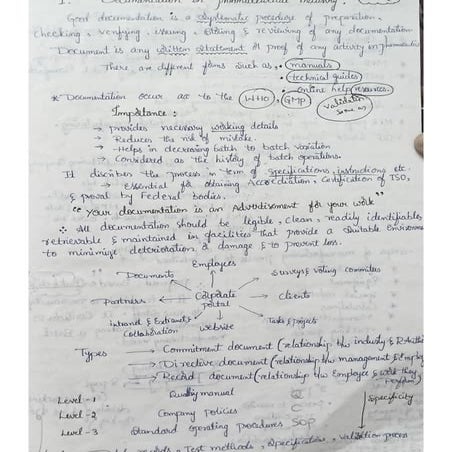 1. Documentation in pharmaceutical industry.
Good documentation is a systematic procedure of preparation,
checking, verifying, issuing, & reviewing of any documentation
Document is any written statement of proof of any activity in pharmaceutics
There are different forms such as, • manuals
• technical guides
• online help resources.
* Documentation occur acc to the WHO, GMP validation
Importance :
→ provides necessary working details
→ Reduces the risk of mistake.
→ Helps in decreasing batch to batch variation
→ Considered as the history of batch operations.
It discribes the process in term of specifications, instructions etc.
→ Essential for obtaining Accrediation, Certification of ISO,
& proval by Federal bodies.
"Your documentation is an Advertisement for your work"
∴ All documentation should be legible, clean, readily identifiable,
retrievable & maintained in facilities that provide a suitable environment
to minimize deterioration & damage & to prevent loss.
Employees
Documents
Surveys & voting commitees
Partners
Corporate portal
clients
intranet & Extranet &
Collaboration
website
Tasks & projects
Types → Commitment document (relationship b/w industry &
→ Directive document (relationship b/w management & Employ
→ Record document (relationship b/w Employee & work they
perform)
Level - 1 Quality manual Specificity
Level - 2 Company Policies C
Level - 3 Standard operating procedures SOP
Test methods, Specification, validation